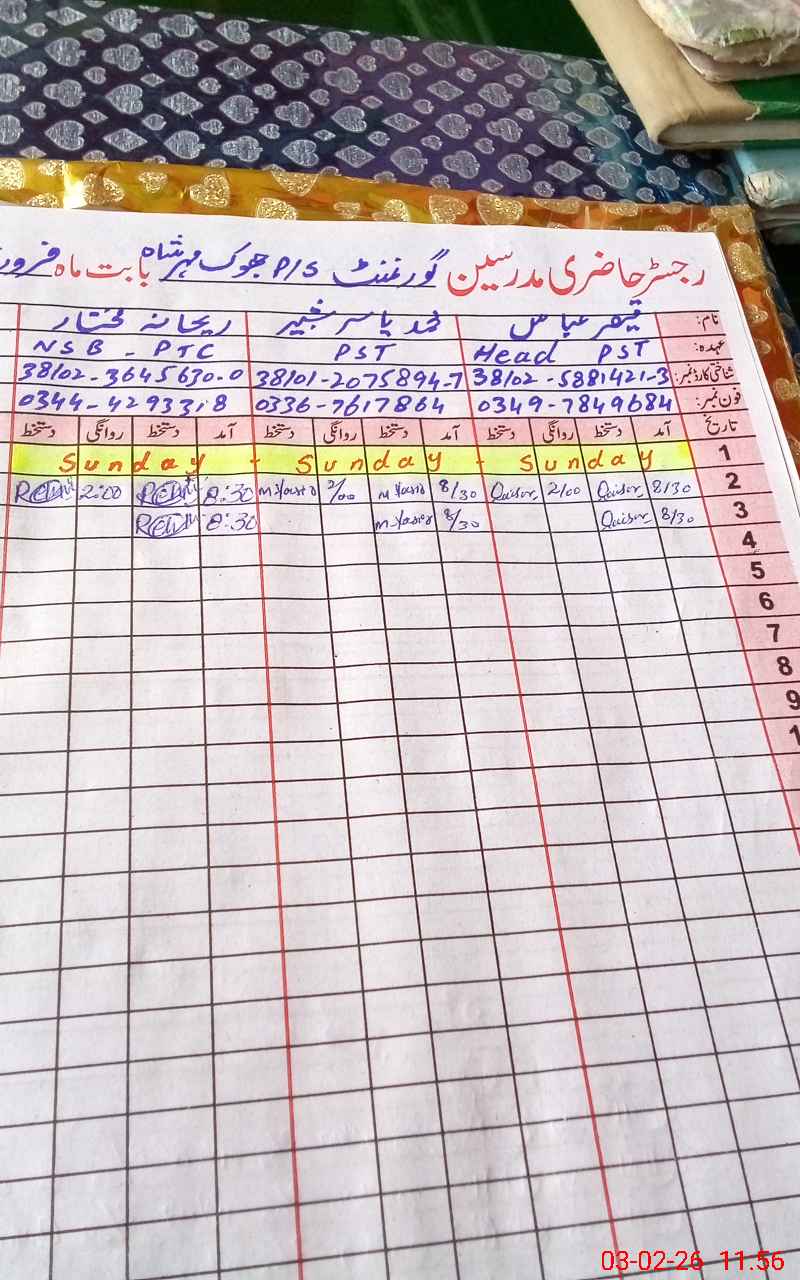 رجسٹر حاضری مدرسین گورنمنٹ P/S جھوک مہر شاہ بابت ماہ
نام: قیصر عباس محمد یاسر شبیر ریحانہ مختار
عہدہ: Head PST PST NSB - PTC
شناختی کارڈ نمبر: 38102-5881421-3 38101-2075894-7 38102-3645630-0
فون نمبر: 0349-7849684 0336-7617864 0344-4293318
تاریخ آمد دستخط روانگی دستخط آمد دستخط روانگی دستخط آمد دستخط روانگی دستخط
1 Sunday - Sunday - Sunday
2 8/30 Qaiser 2/00 Qaiser 8/30 m Yasir 2/00 m Yasir 8:30 2:00
3 8/30 Qaiser 8/30 m Yasir 8:30
4
5
6
7
8
9
1
03-02-26 11.56